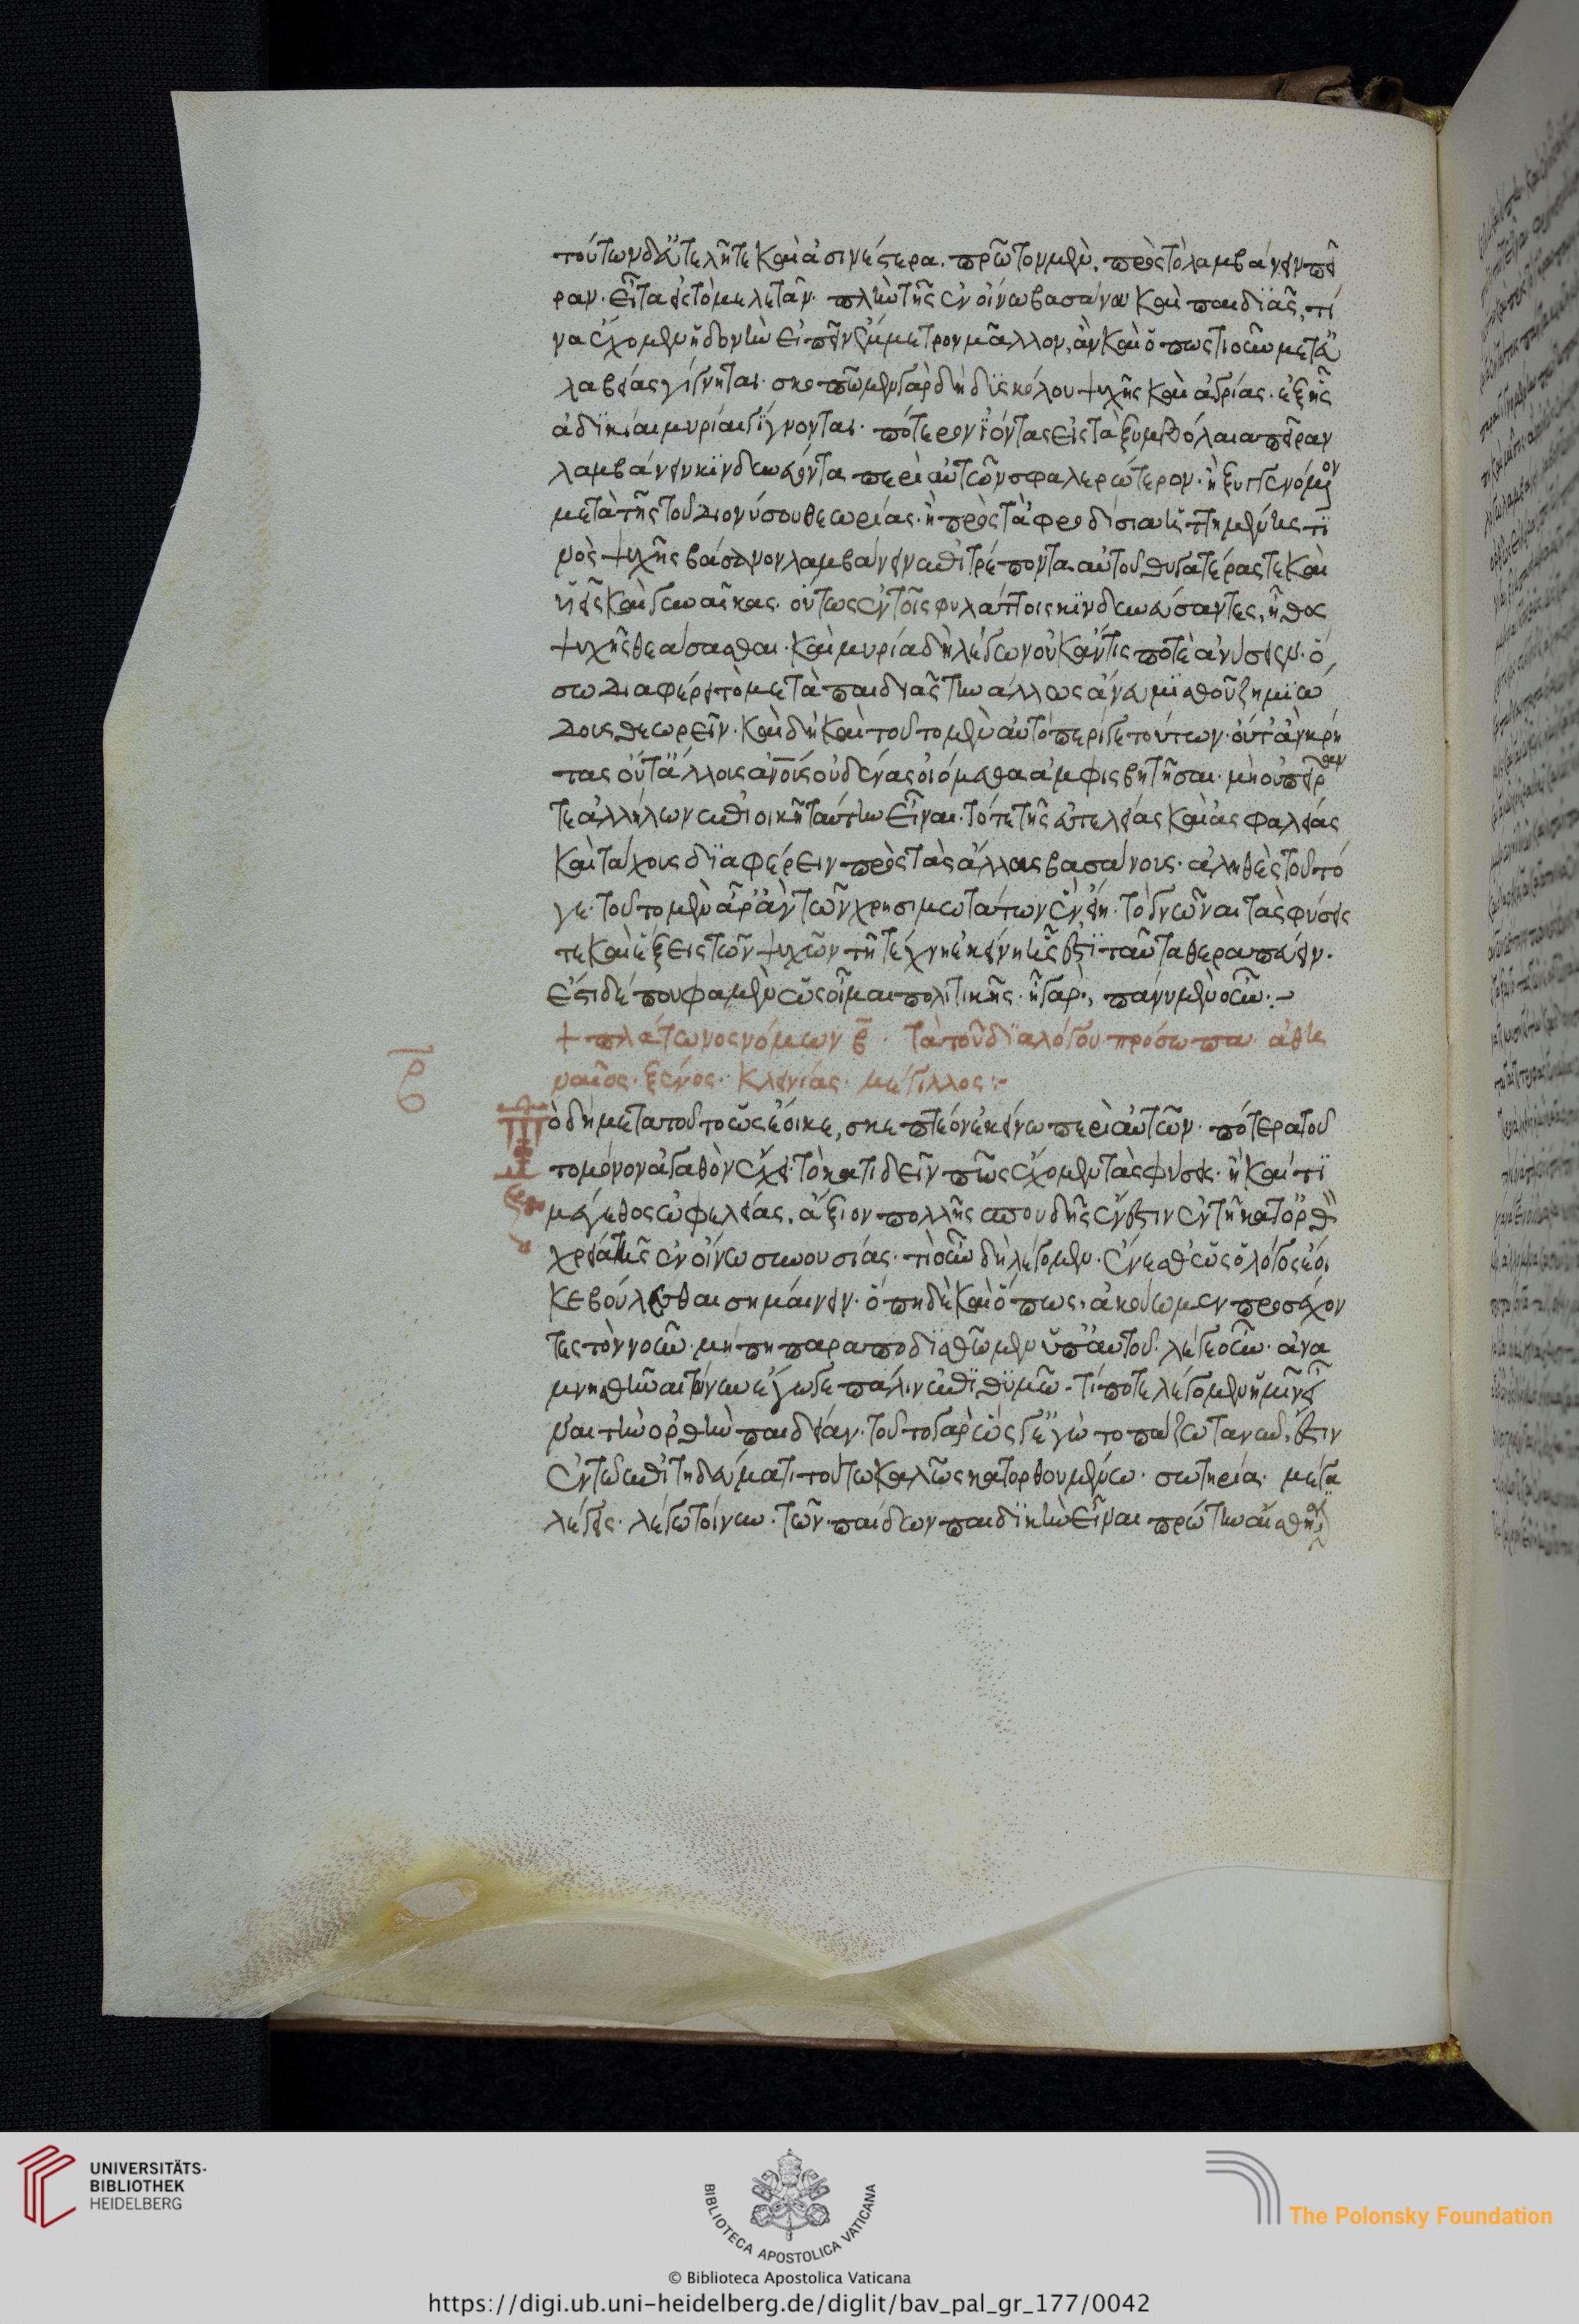 τούτων δ' εὐτελῆ τε καὶ ἀσινέστερα. πρῶτον μὲν, πρὸς τὸ λαμβάνειν πεῖ
ραν. εἶτα εἰς τὸ μελετᾶν. πλὴν τῆς ἐν οἴνω βασάνου καὶ παιδϊᾶς, τί
να ἔχομεν ἡδονὴν εἰπεῖν ξύμμετρον μᾶλλον, ἂν καὶ ὅπως τι οῦν μετ' εὐ
λαβείας γίγνηται. σκοπῶμεν γὰρ δὴ δϋσκόλου ψυχῆς καὶ ἀγρίας. ἐξ ἧς
ἀδϊκίαι μυρίαι γίγνονται. πότερον ϊόντα εἰς τὰ ξυμβόλαια πεῖραν
λαμβάνειν κϊνδυνεύοντα περὶ αὐτῶν σφαλερώτερον. ἢ ξυγγενόμενον
μετὰ τῆς τοῦ διονύσου θεωρίας. ἢ πρὸς τἀφροδίσια ἡττημένης τϊ
νὸς ψυχῆς βάσανον λαμβάνειν ἐπιτρέποντα αὐτοῦ θυγατέρας τε καὶ
υἱεῖς καὶ γυναῖκας. οὕτως ἐν τοῖς φιλτάτοις κϊνδυνεύσαντες, ἦθος
ψυχῆς θεάσασθαι. καὶ μυρία δὴ λέγων οὐκ ἄν τις ποτὲ ἀνύσειεν. ὅ
σω διαφέρει τὸ μετὰ παιδιᾶς τὴν ἄλλως ἄνευ μϊσθοῦ ζημϊώ
δους θεωρεῖν. καὶ δὴ καὶ τοῦτο μὲν αὐτὸ περί γε τούτων. οὔτ' ἂν κρῆ
τας οὔτ' ἄλλους ἀν̅ο̅υς οὐδένας οἰόμεθα ἀμφισβητῆσαι. μὴ οὐ πεῖραν
τε ἀλλήλων ἐπιεικῆ ταύτην εἶναι. τό τε τῆς εὐτελείας καὶ ἀσφαλείας
καὶ τάχους δϊαφέρειν πρὸς τὰς ἄλλας βασάνους. ἀληθὲς τοῦτό
γε. τοῦτο μὲν ἆρ' ἂν τῶν χρησιμωτάτων ἓν εἴη. τὸ γνῶναι τὰς φύσεις
τε καὶ ἕξεις τῶν ψυχῶν τῆ τέχνη ἐκείνη ἧς ἐστϊ ταῦτα θεραπεύειν.
ἔστι δέ που φαμὲν ὡς οἶμαι πολιτικῆς. ἦ γάρ., πάνυ μὲν οὖν:-
+ πλάτωνος νόμων β̅. τὰ τοῦ δϊαλόγου πρόσωπα. ἀθη
ναῖος. ξένος. κλεινίας. μέγιλλος:-
β̅
Τὸ δὴ μετὰ τοῦτο ὡς ἔοικε, σκεπτέον ἐκεῖνο περὶ αὐτῶν. πότερα τοῦ
το μόνον ἀγαθὸν ἔχει. τὸ κατιδεῖν πῶς ἔχομεν τὰς φύσεις. ἢ καί τϊ
μέγεθος ὠφελείας. ἄξιον πολλῆς σπουδῆς ἔνεστιν ἐν τῆ κατ' ὀρθὸν
χρεία τῆς ἐν οἴνω συνουσίας. τὶ οὖν δὴ λέγομεν. ἔνεσθ' ὡς ὁ λόγος ἔοι
κε βούλεσθαι σημαίνειν. ὅπη δὲ καὶ ὅπως. ἀκούωμεν προσέχον
τες τὸν νοῦν. μή πη παραποδϊσθῶμεν ὑπ' αὐτοῦ. λέγε οὖν. ἀνα
μνησθῆναι τοίνυν ἔγωγε πάλιν ἐπϊθϋμῶ. τί ποτε λέγομεν ἡμῖν εἶ
ναι τὴν ὀρθὴν παιδείαν. τοῦτο γὰρ ὥς γε ἐγὼ τοπάζω τανῦν. ἔστιν
ἐν τῶ ἐπιτηδεύματι τούτω καλῶς κατορθουμένω. σωτηρία. μέγα
λέγεις. λέγω τοίνυν. τῶν παίδων παιδϊκὴν εἶναι πρώτην αἴσθησιν
UNIVERSITÄTS-
BIBLIOTHEK
HEIDELBERG
BIBLIOTECA APOSTOLICA VATICANA
The Polonsky Foundation
© Biblioteca Apostolica Vaticana
https://digi.ub.uni-heidelberg.de/diglit/bav_pal_gr_177/0042